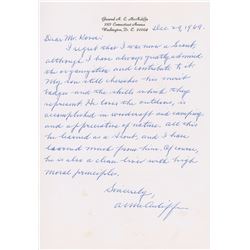 General A. C. McAuliffe
Connecticut Avenue
Washington, D. C. 20008
Dec 29, 1969.
Dear Mr.
I regret that I was never a Scout,
although I have always greatly admired
the organization and contribute to it.
My son still cherishes his merit
badges and the skills which they
represent. He loves the outdoors, is
accomplished in woodcraft and camping
and appreciative of nature. All this
he learned as a Scout, and I have
learned much from him. Of course,
he is also a clean liver with high
moral principles.
Sincerely,
A C McAuliffe